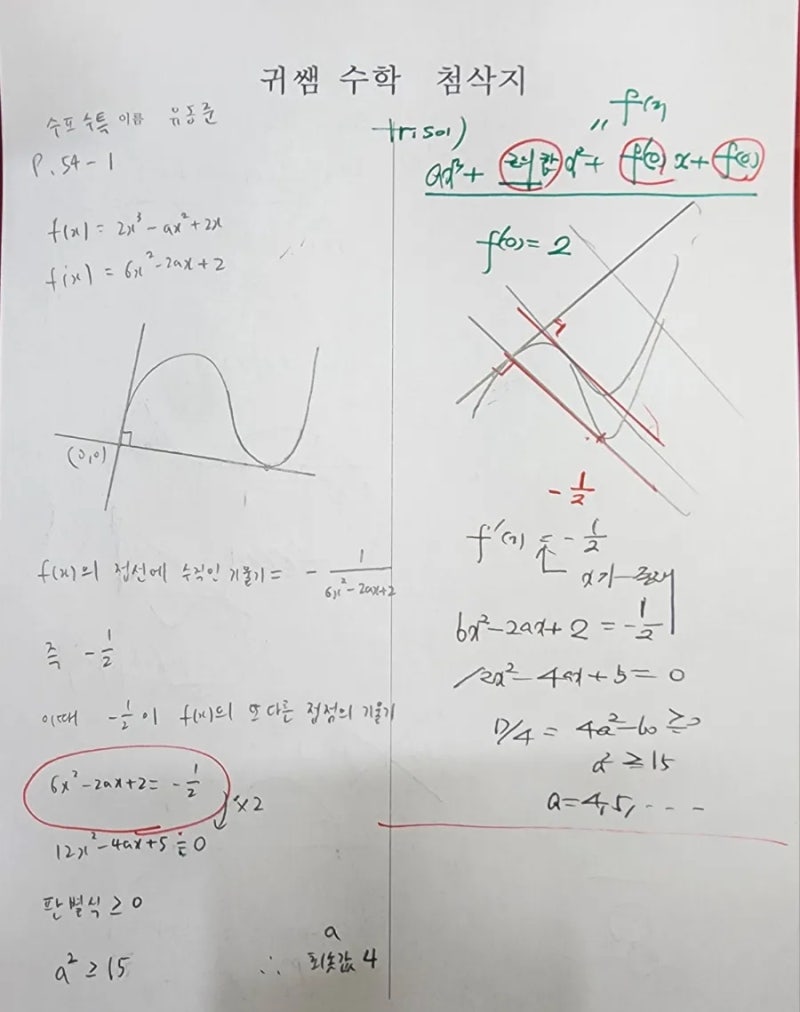 귀쌤 수학 첨삭지
수포 수특 이름 유동준
P. 54 - 1
f(x) = 2x³ - ax² + 2x
f'(x) = 6x² - 2ax + 2
(0,0)
f(x)의 접선에 수직인 기울기 = - 1/(6x² - 2ax + 2)
즉 - 1/2
이때 - 1/2 이 f(x)의 또 다른 접점의 기울기
6x² - 2ax + 2 = - 1/2
×2
12x² - 4ax + 5 = 0
판별식 ≥ 0
a² ≥ 15
∴ a 최솟값 4
+ri sol)
f(x)
ax³ + 근의 합 x² + f'(0) x + f(0)
f'(0) = 2
- 1/2
f'(x) = - 1/2
x가 존재
6x² - 2ax + 2 = - 1/2
12x² - 4ax + 5 = 0
D/4 = 4a² - 60 ≥ 0
a² ≥ 15
a = 4, 5, - - -